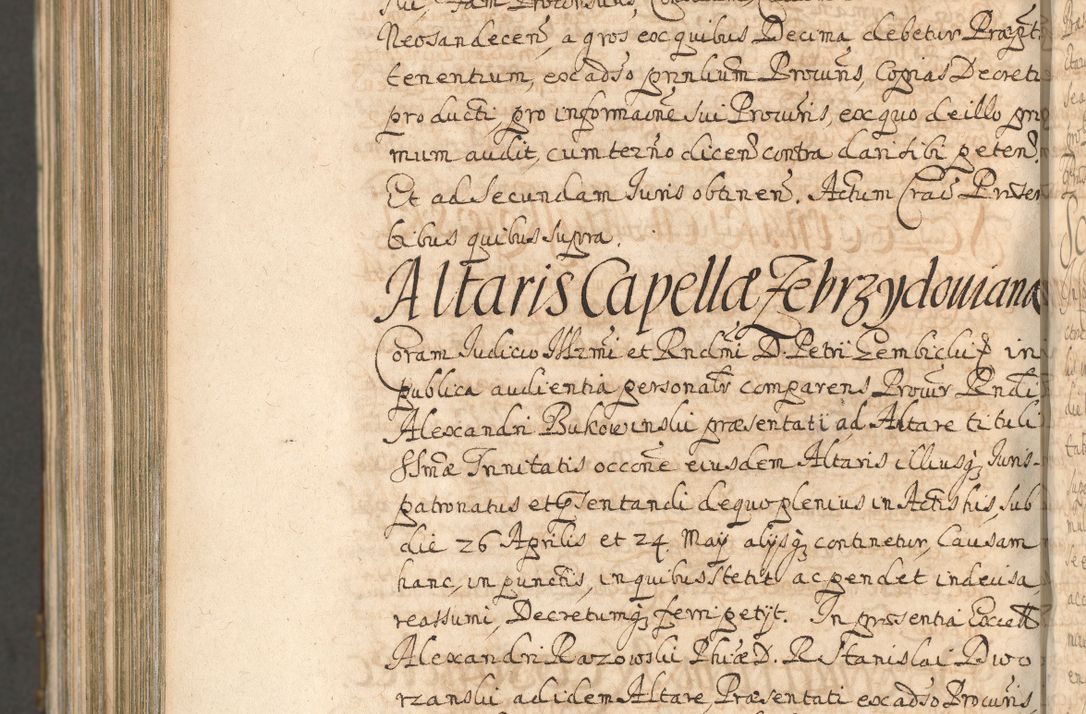 Neosandeceñ, agros ex quibus Decima debetur Præg̃t
tenentium, ex adſo prinlium Procuris, Copias Decreti
producti, pro informaõne sui Procuris, ex quo de illo pri
mum audit, cum termõ diceñ contra dari sibi peteñ.
Et ad Secundam Iuris obtineñ. Actum Crac̃ Præsen
tibus quibus supra.
Altaris Capellæ Zebrzydouianæ
Coram Iudicio Illr̃mi et Rndm̃i D. Petri Gembicki in
publica audientia personalr̃ comparens Procur̃ Rndi
Alexandri Bukowinski præsentati ad Altare tituli
SSmæ Trinitatis occõne eiusdem Altaris illiusq; Iuris-
patronatus et p̃sentandi de quo plenius in Actis his, sub
die 26 Aprilis et 24. Maÿ alÿsq; continetur, Causam
hanc, in punctis, in quibus stetit ac pendet indecisa
reassumi, Decretumq; ferri petÿt. In præsentia Excell
Alexandri Razowski Phiæ D. R Stanislai Dwo
rzanski ad idem Altare, Præsentati ex adſo Procuris,